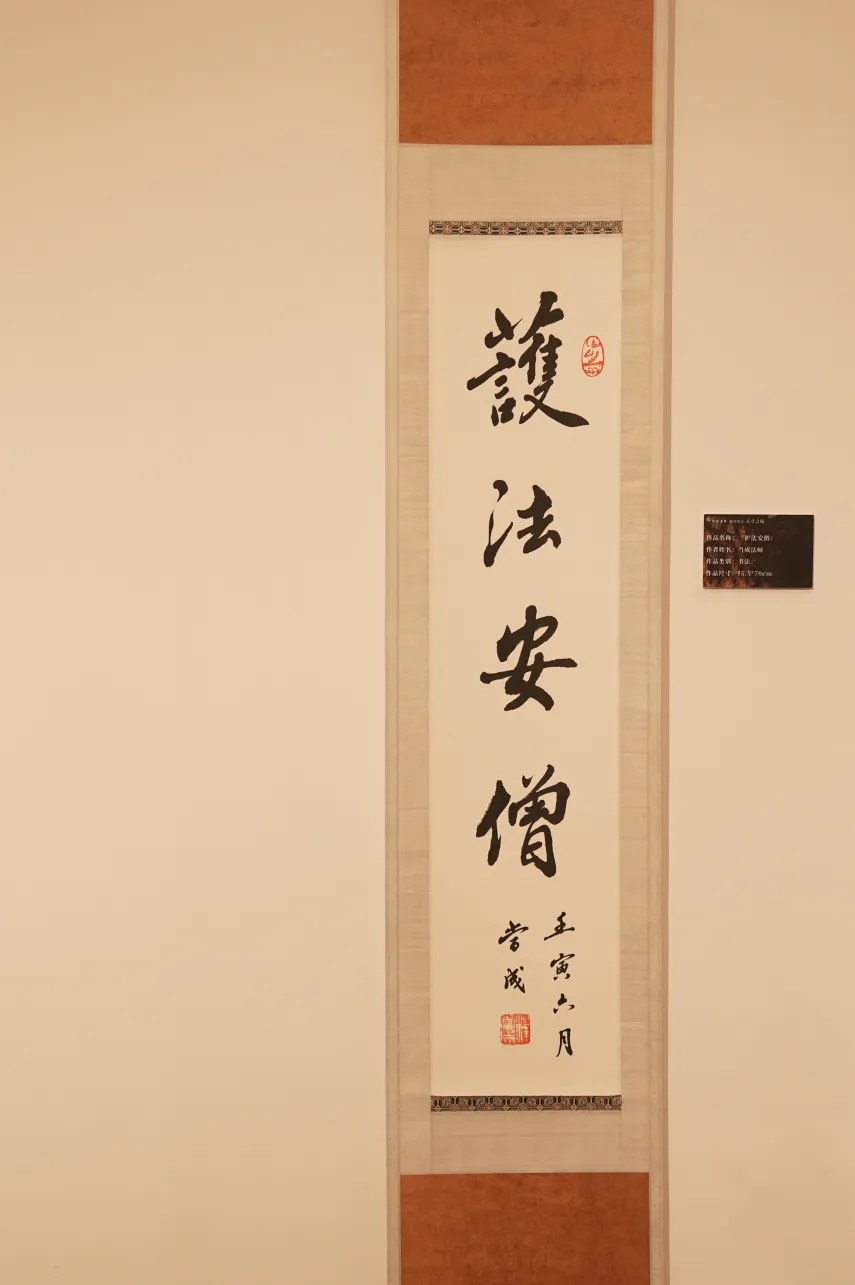 護法安僧
壬寅六月
常成
作品名称:《护法安僧》
作者姓名:常成法师
作品类别:书法
作品尺寸:15.5*70cm